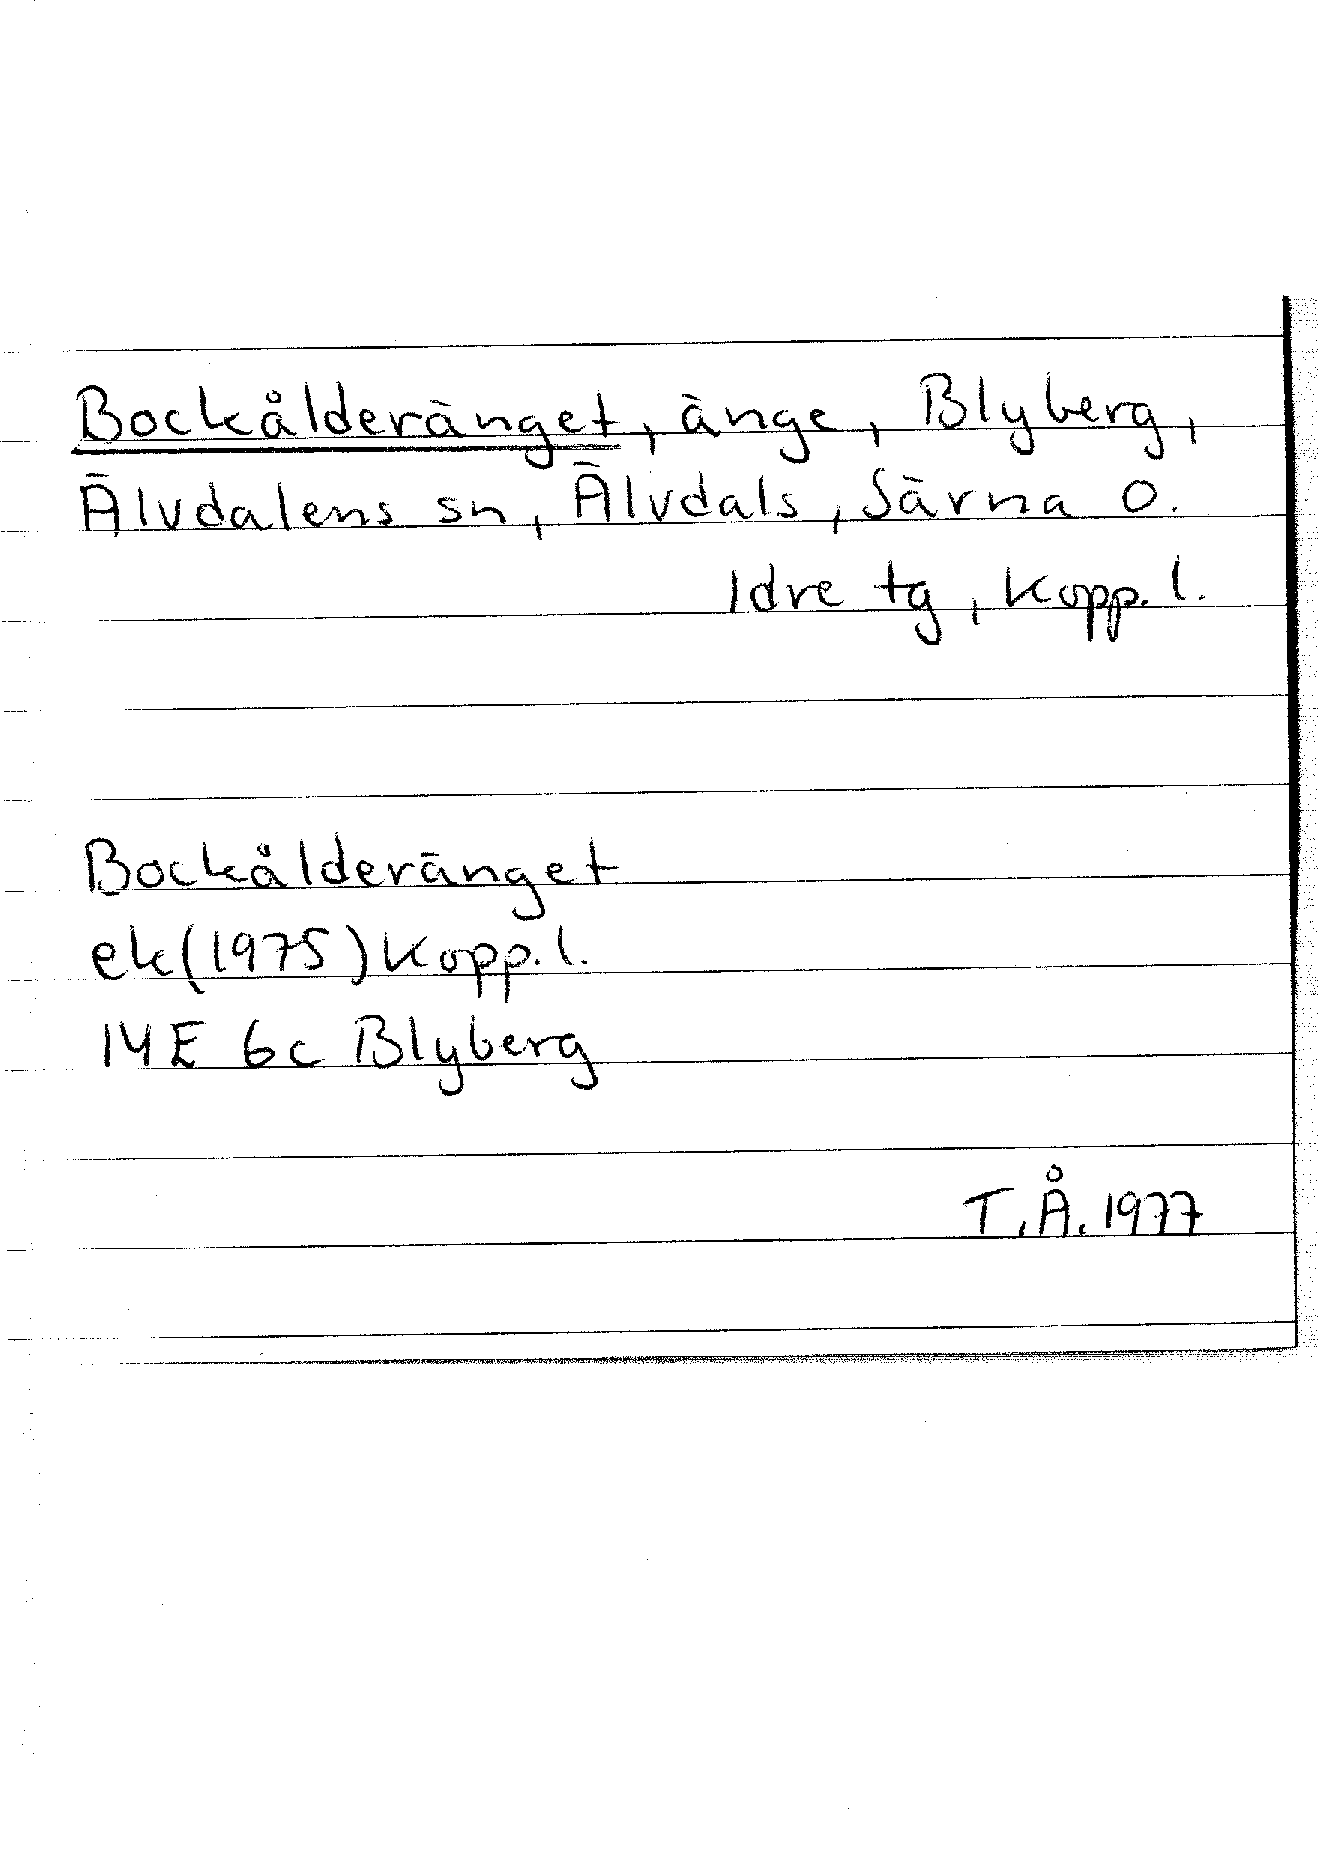 Bockålderänget, änge, Blyberg,
Älvdalens sn, Älvdals, Särna o.
Idre tg, Kopp. l.
Bockålderänget
ek(1975) Kopp. l.
14E 6c Blyberg
T.Å. 1977